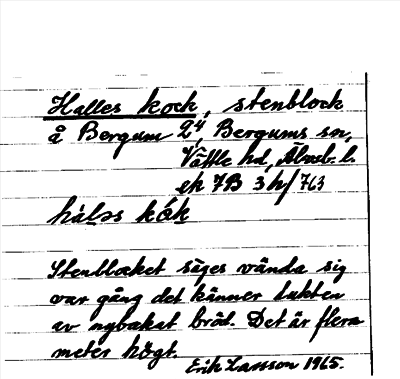 Halles kock, stenblock
å Bergum 2⁴, Bergums sn,
Vättle hd, Älvsb. l.
ek 7B 3h/763
hálɘs kók
Stenblocket säges vända sig
var gång det känner lukten
av nybakat bröd. Det är flera
meter högt.
Erik Larsson 1965.